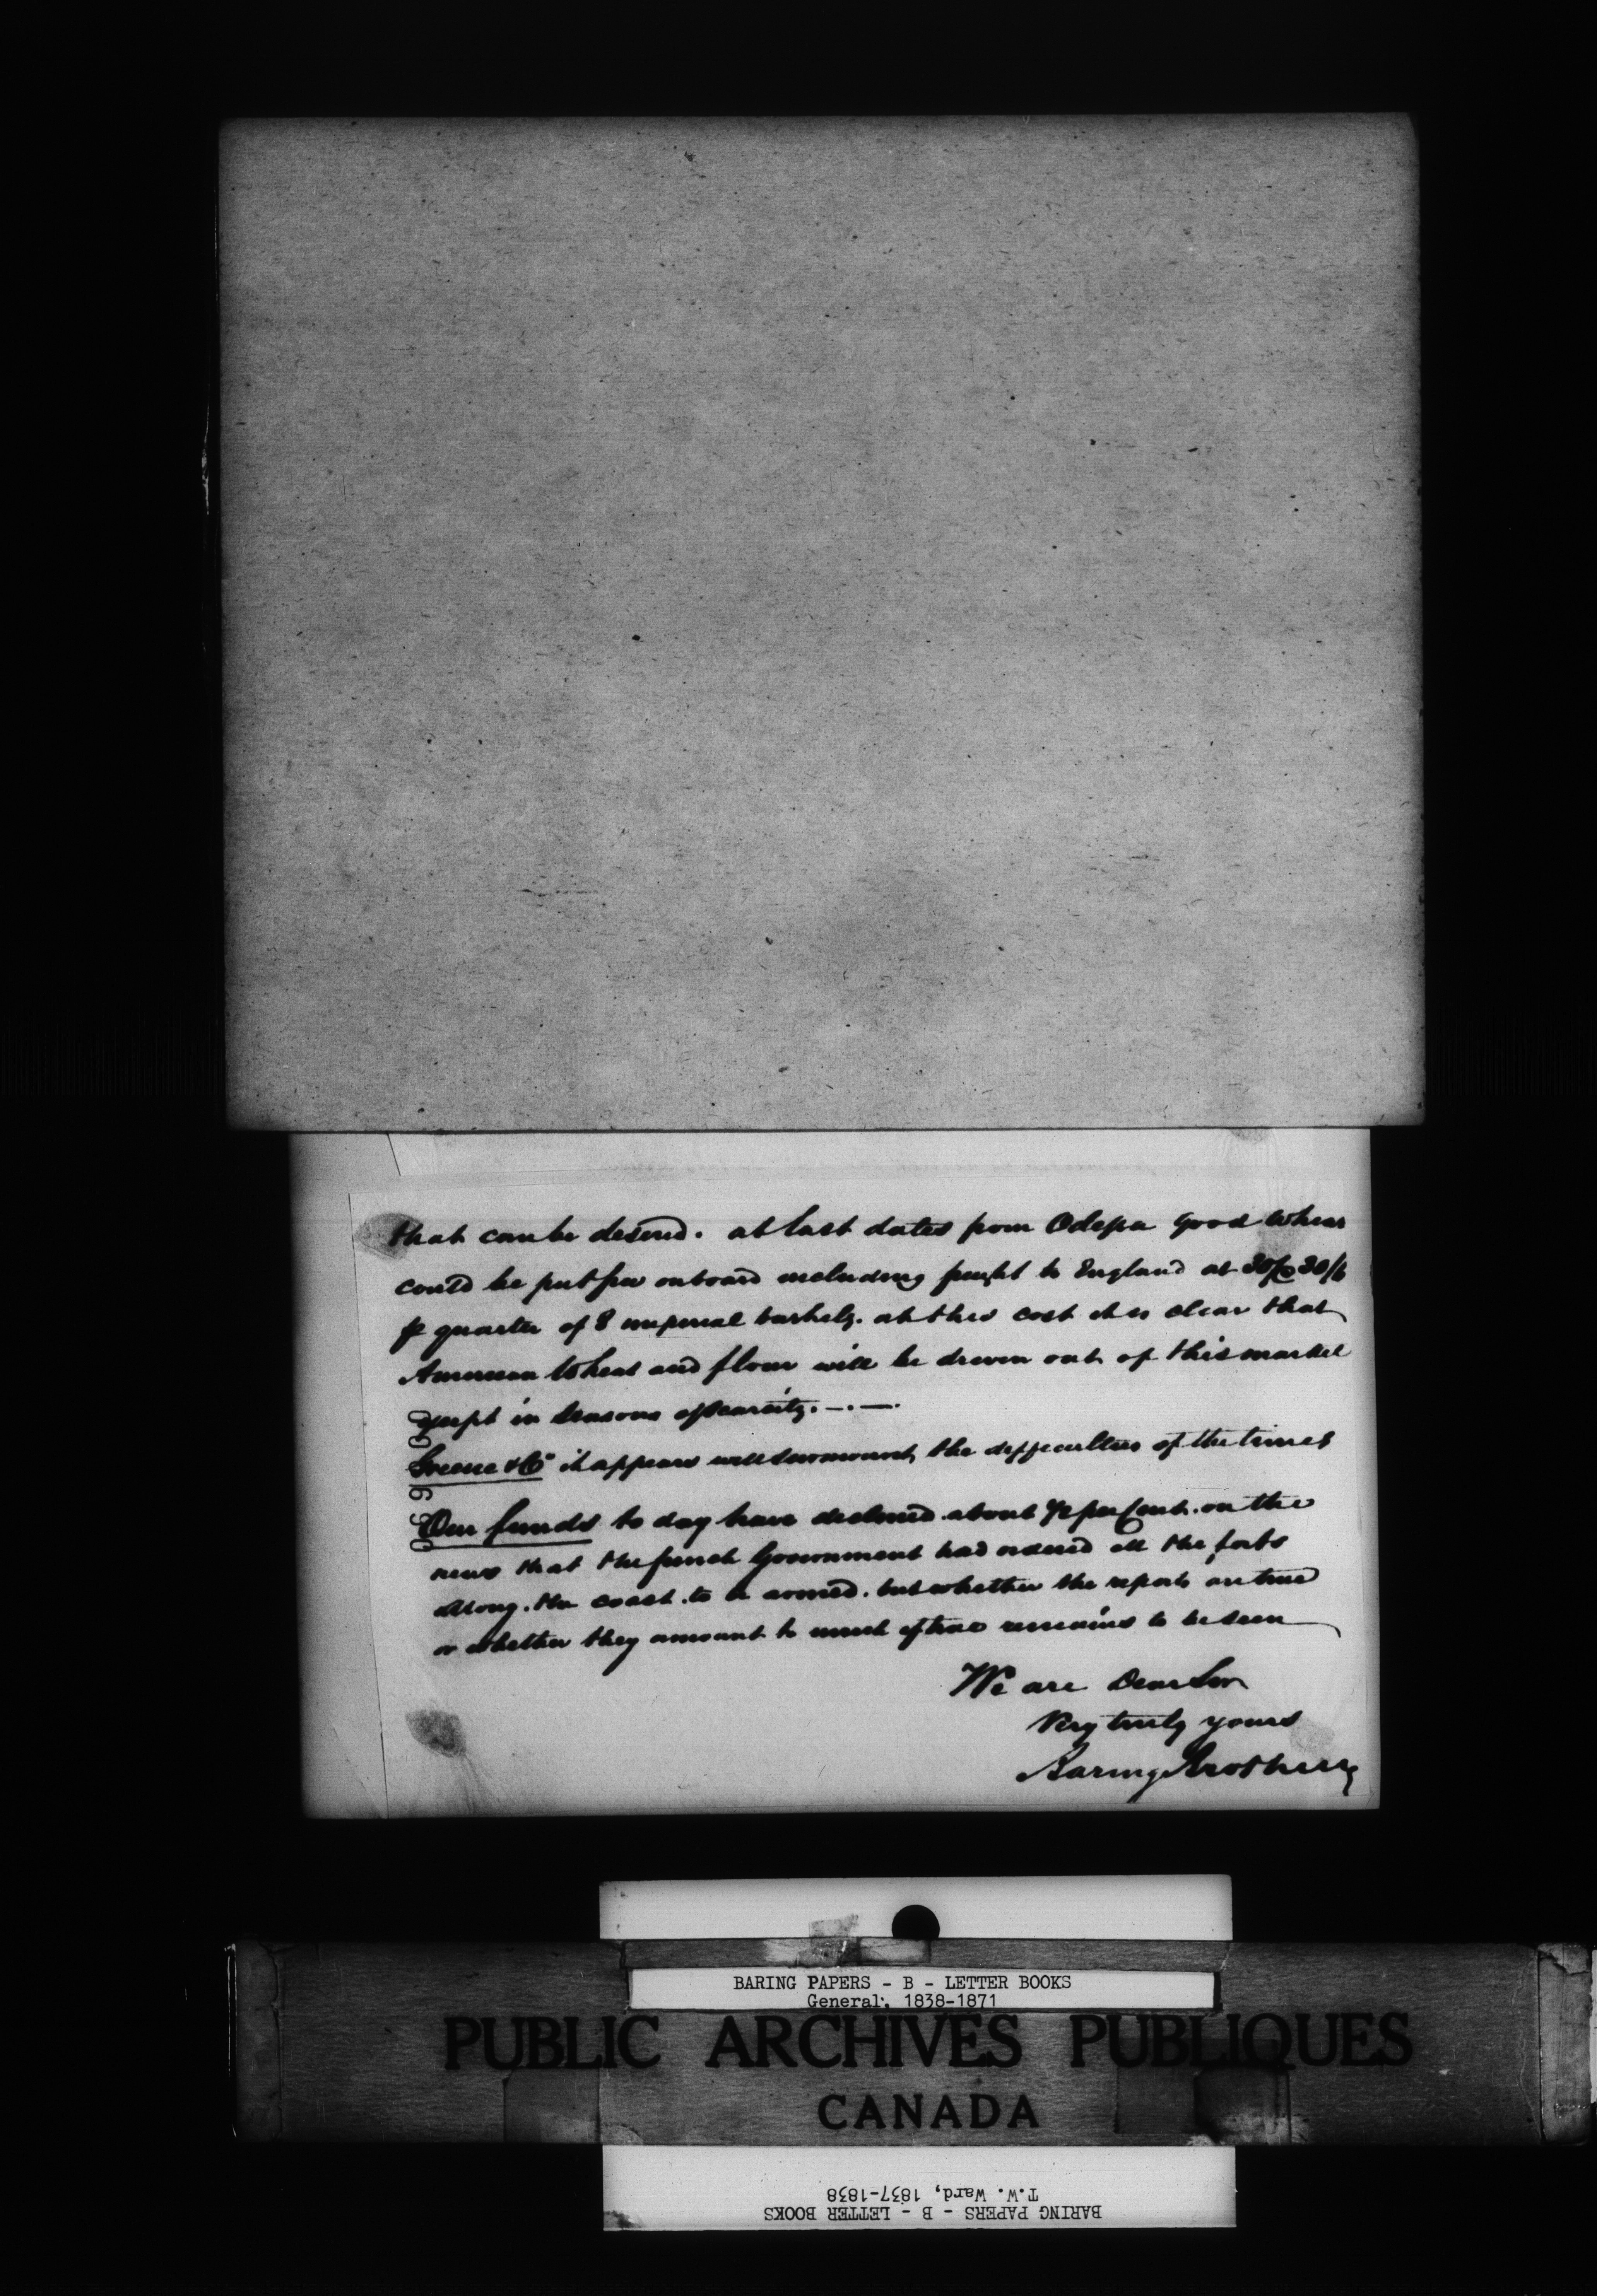 that can be desired. at last dates from Odessa good Wheat
could be put free on board including freight to England at
pr quarter of 8 imperial bushels. at this cost it is clear that
American Wheat and flour will be driven out of this market
except in Seasons of Scarcity. —.—.
Greene & Co it appears will surmount the difficulties of the times
Our funds to day have declined about per Cent. on the
news that the french Government had ordered all the forts
along the coast to be armed. but whether the reports are true
or whether they amount to much if true remains to be seen
We are Dear Sir
Very truly yours
Baring Brothers
BARING PAPERS - B - LETTER BOOKS
General, 1838-1871
PUBLIC ARCHIVES PUBLIQUES
CANADA
BARING PAPERS - B - LETTER BOOKS
T.W. Ward, 1837-1838